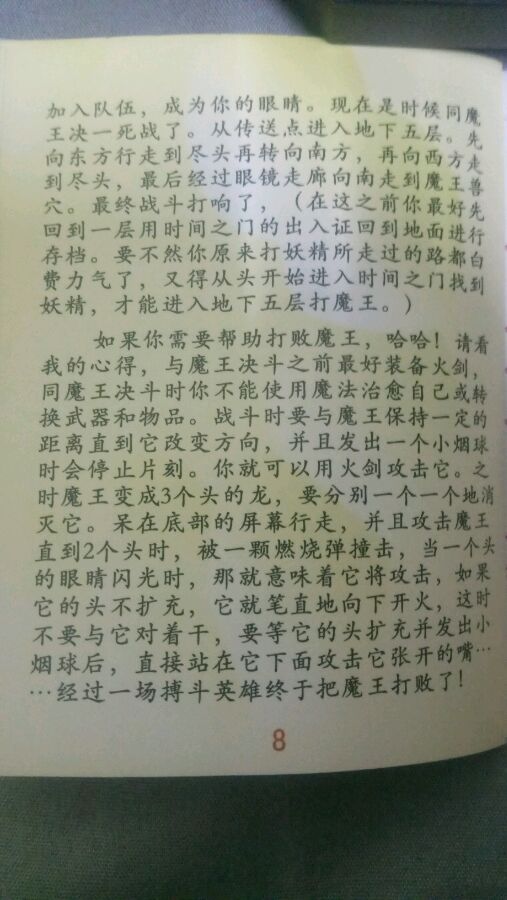 加入队伍，成为你的眼睛。现在是时候同魔
王决一死战了。从传送点进入地下五层。先
向东方行走到尽头再转向南方，再向西方走
到尽头，最后经过眼镜走廊向南走到魔王兽
穴。最终战斗打响了，（在这之前你最好先
回到一层用时间之门的出入证回到地面进行
存档。要不然你原来打妖精所走过的路都白
费力气了，又得从头开始进入时间之门找到
妖精，才能进入地下五层打魔王。）
如果你需要帮助打败魔王，哈哈！请看
我的心得，与魔王决斗之前最好装备火剑，
同魔王决斗时你不能使用魔法治愈自己或转
换武器和物品。战斗时要与魔王保持一定的
距离直到它改变方向，并且发出一个小烟球
时会停止片刻。你就可以用火剑攻击它。之
时魔王变成3个头的龙，要分别一个一个地消
灭它。呆在底部的屏幕行走，并且攻击魔王
直到2个头时，被一颗燃烧弹撞击，当一个头
的眼睛闪光时，那就意味着它将攻击，如果
它的头不扩充，它就笔直地向下开火，这时
不要与它对着干，要等它的头扩充并发出小
烟球后，直接站在它下面攻击它张开的嘴…
…经过一场搏斗英雄终于把魔王打败了！
8